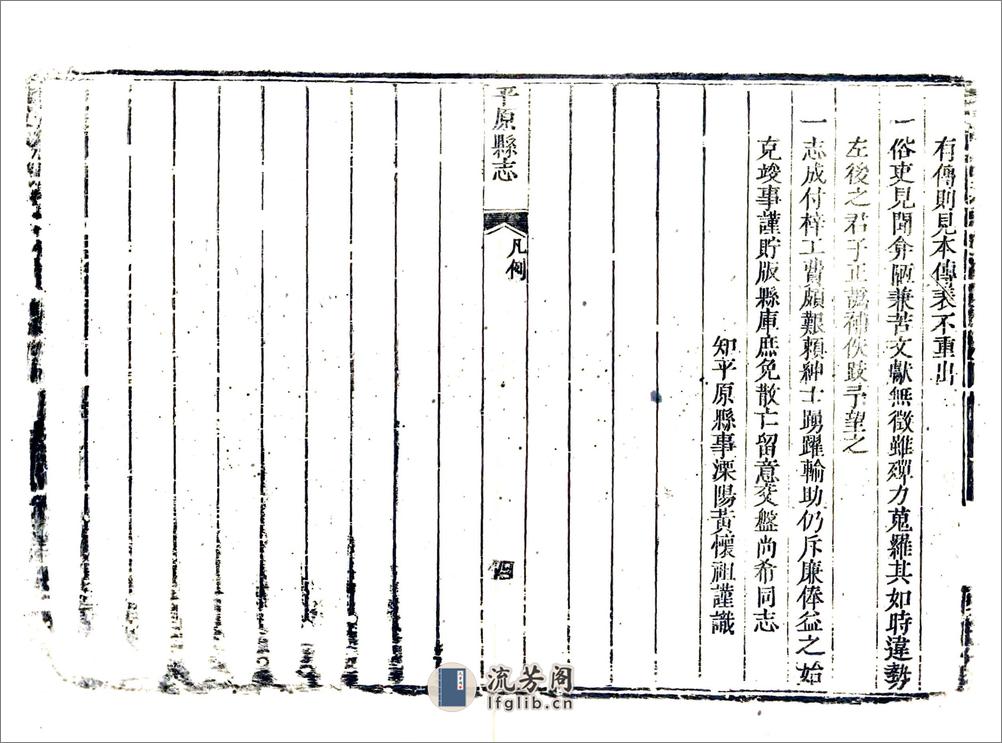 有傳則見本傳表不重出
一俗吏見聞弇陋兼苦文獻無徵雖殫力蒐羅其如時違勢
左後之君子正譌補佚跂予望之
一志成付梓工費頗艱賴紳士踴躍輸助仍斥廉俸益之始
克竣事謹貯版縣庫庶免散亡留意交盤尚希同志
知平原縣事溧陽黃懷祖謹識
平原縣志
凡例
四
流芳阁
lfglib.cn